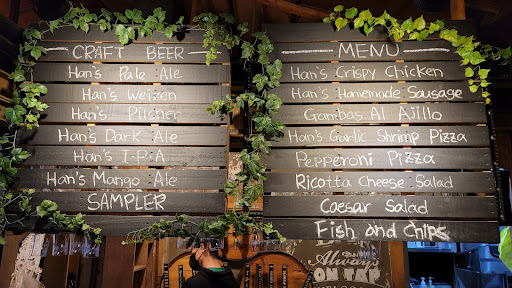 CRAFT BEER
Han's Pale Ale
Han's Weizen
Han's Pilsner
Han's Dark Ale
Han's I-P-A
Han's Mango Ale
SAMPLER
MENU
Han's Crispy Chicken
Han's Homemade Sausage
Gambas Al Ajillo
Han's Garlic Shrimp Pizza
Pepperoni Pizza
Ricotta Cheese Salad
Caesar Salad
Fish and Chips
Always
ON TAP